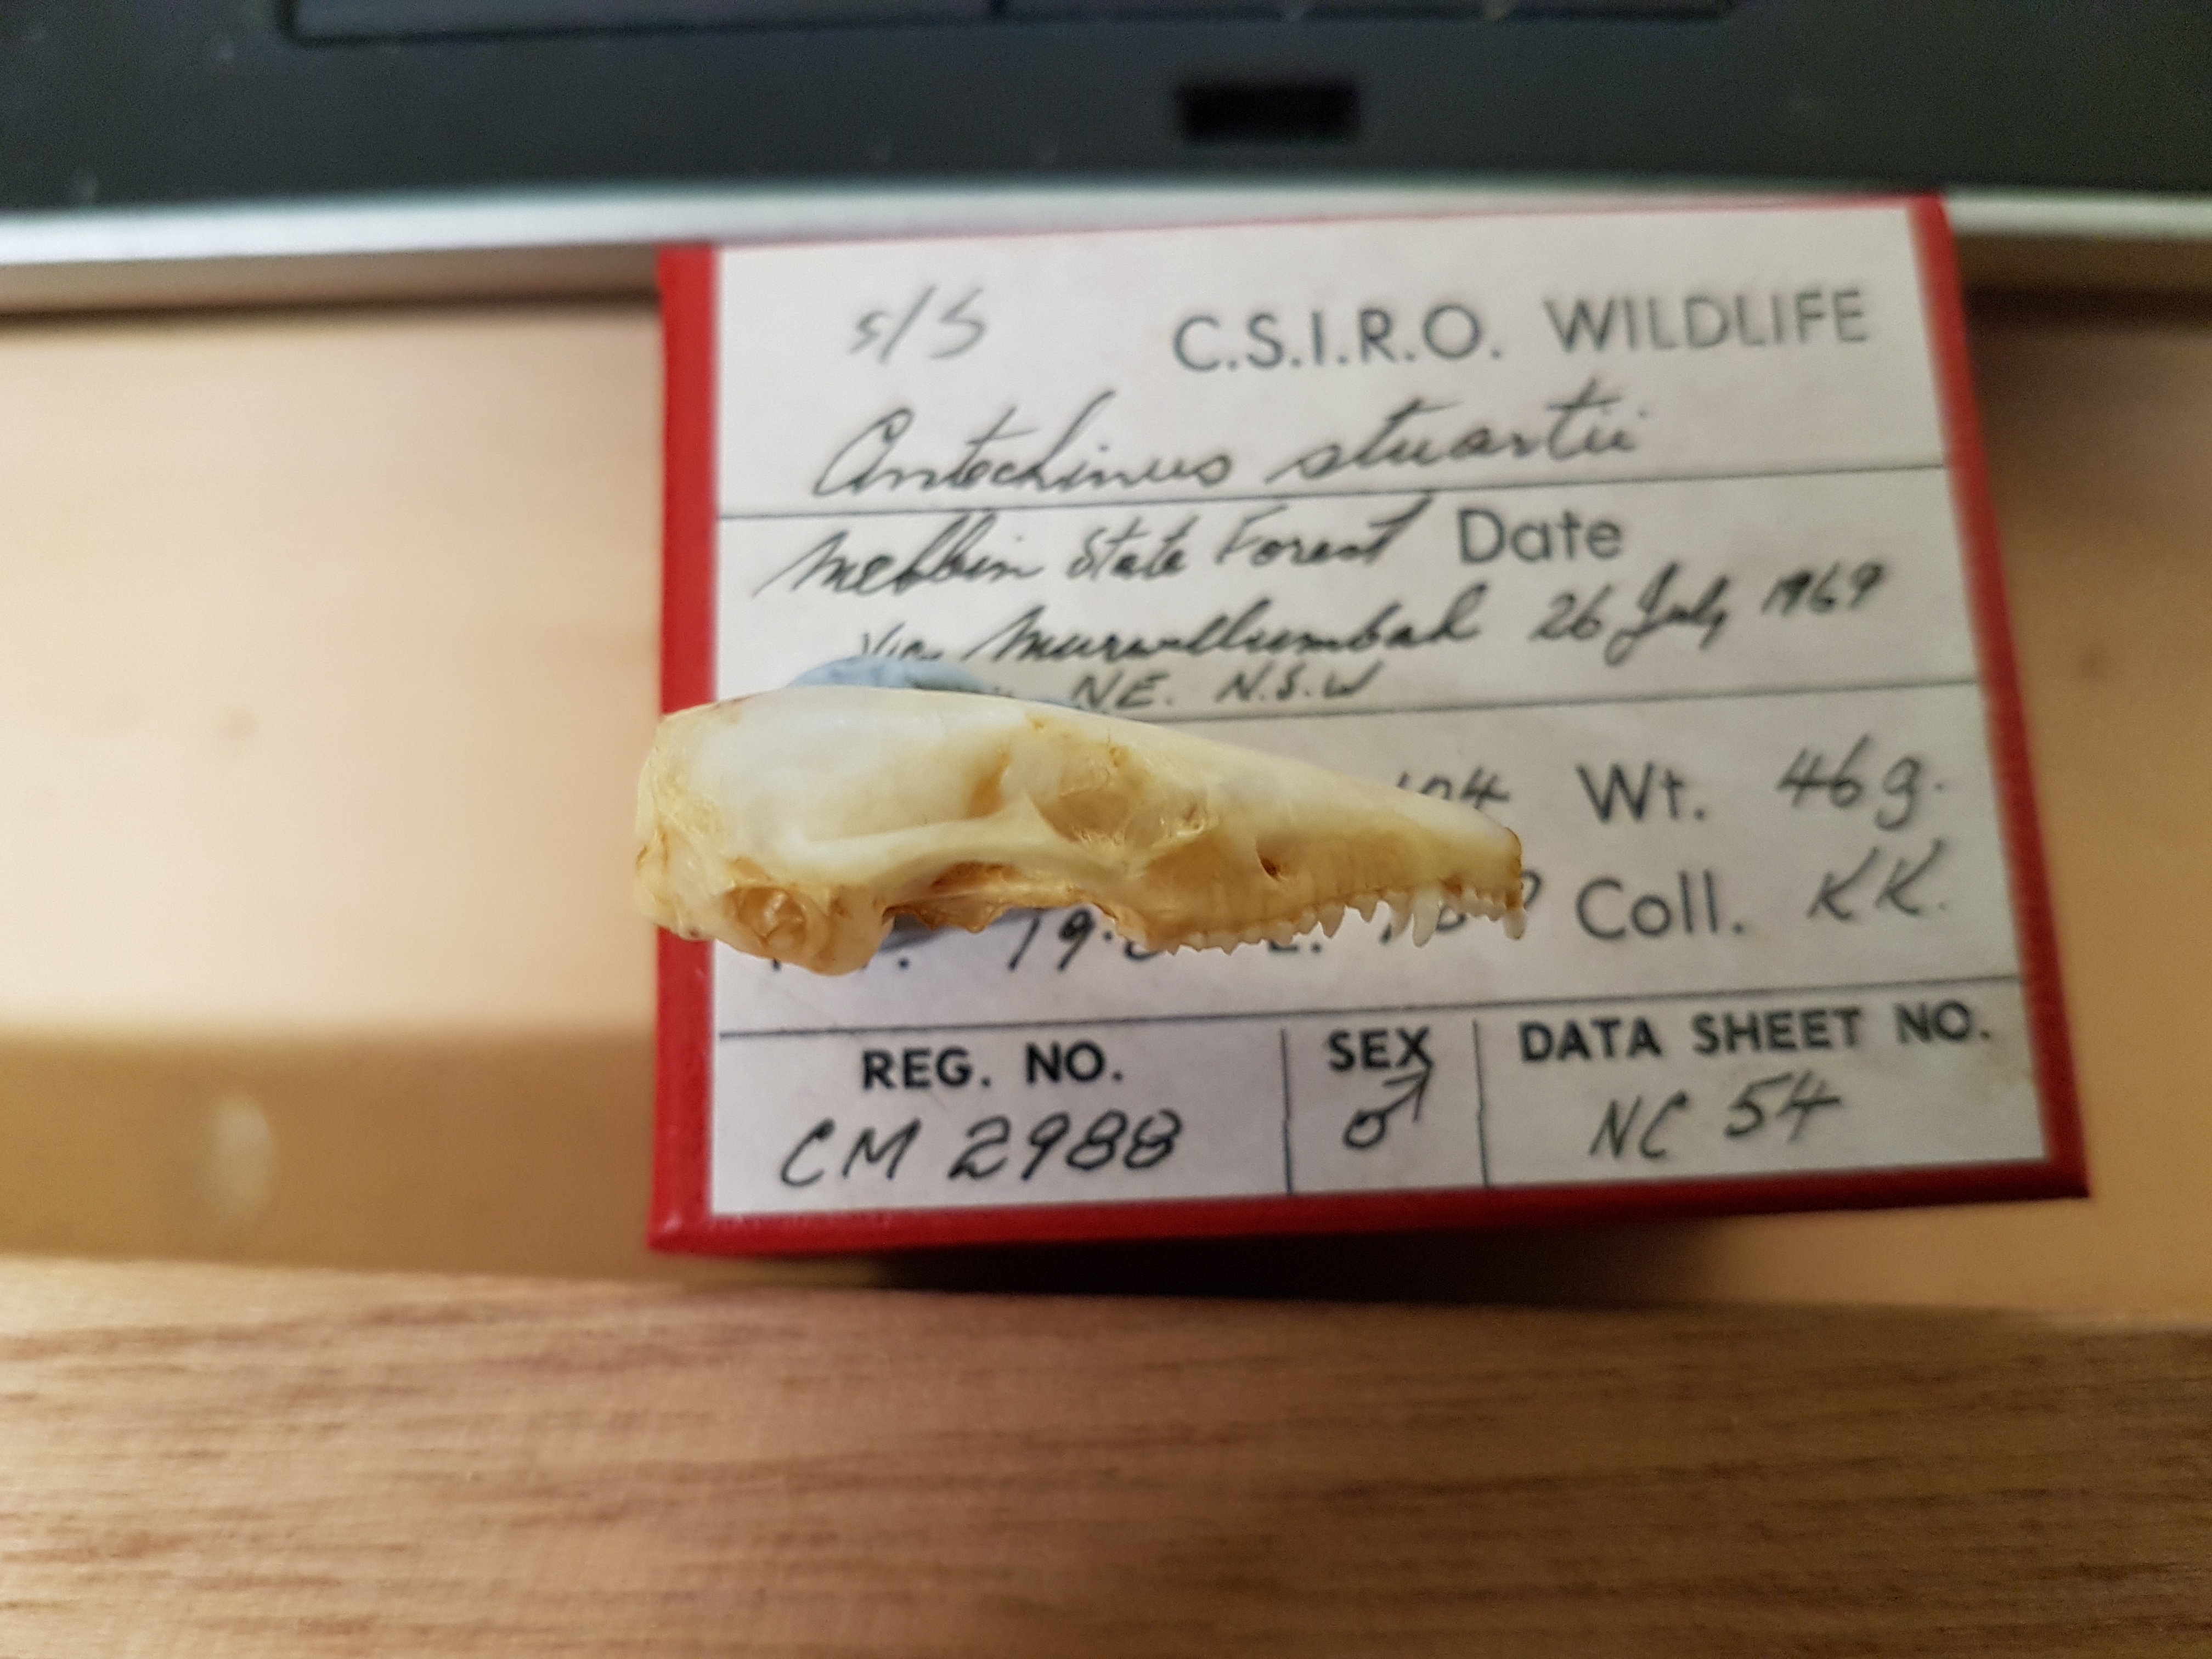 s/S C.S.I.R.O. WILDLIFE
Antechinus stuartii
Mebbin State Forest Date
Via Murwillumbah 26 July 1969
NE. N.S.W
104 Wt. 46g.
19. Coll. KK.
REG. NO. SEX DATA SHEET NO.
CM 2988 ♂ NC 54